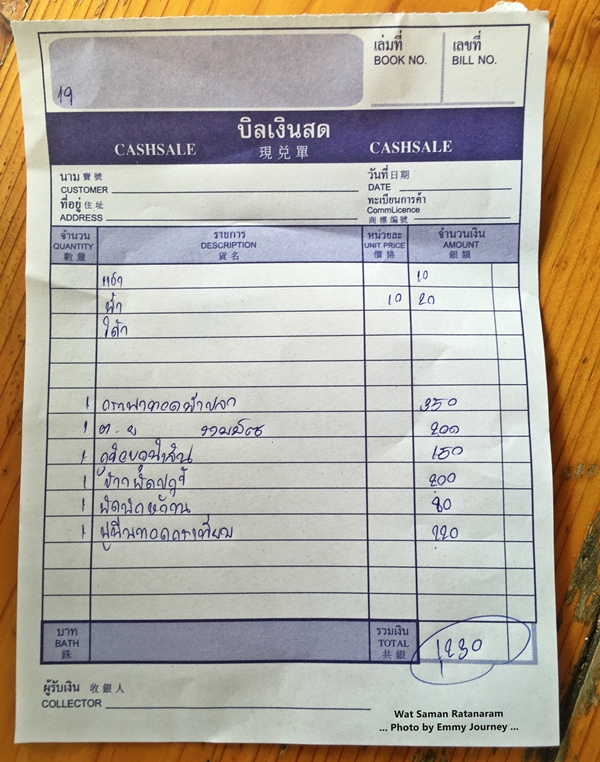 เล่มที่ เลขที่
BOOK NO. BILL NO.
19
บิลเงินสด
CASHSALE 現兑單 CASHSALE
นาม 寶號 วันที่ 日期
CUSTOMER DATE
ที่อยู่ 住址 ทะเบียนการค้า
ADDRESS CommLicence
商標編號
จำนวน รายการ หน่วยละ จำนวนเงิน
QUANTITY DESCRIPTION UNIT PRICE AMOUNT
數量 貨名 價格 銀額
10
น้ำ 10 20
โค้ก
1 กะพงทอดน้ำปลา 350
1 ต.ย รวมมิตร 200
1 150
1 ข้าวผัดปู 200
1 80
1 ทอดกระเทียม 220
บาท รวมเงิน
BATH TOTAL 1230
銖 共銀
ผู้รับเงิน 收銀人
COLLECTOR
Wat Saman Ratanaram
... Photo by Emmy Journey ...